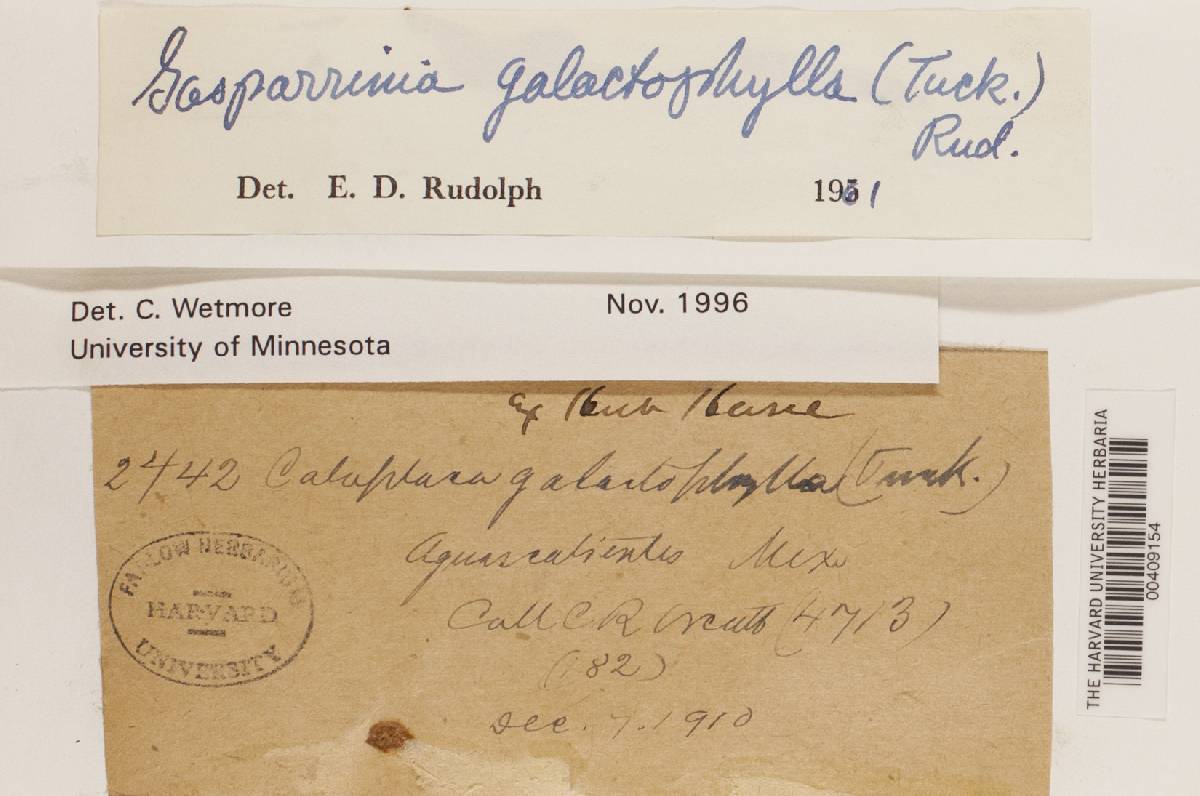 Gasparrinia galactophylla (Tuck.)
Rud.
Det. E. D. Rudolph 1961
Det. C. Wetmore Nov. 1996
University of Minnesota
Ex Herb Hasse
2442 Caloplaca galactophylla (Tuck.)
Aguascalientes Mex.
Coll C R Orcutt (4713)
(182)
Dec. 7. 1910
FARLOW HERBARIUM
HARVARD
UNIVERSITY
THE HARVARD UNIVERSITY HERBARIA
00409154